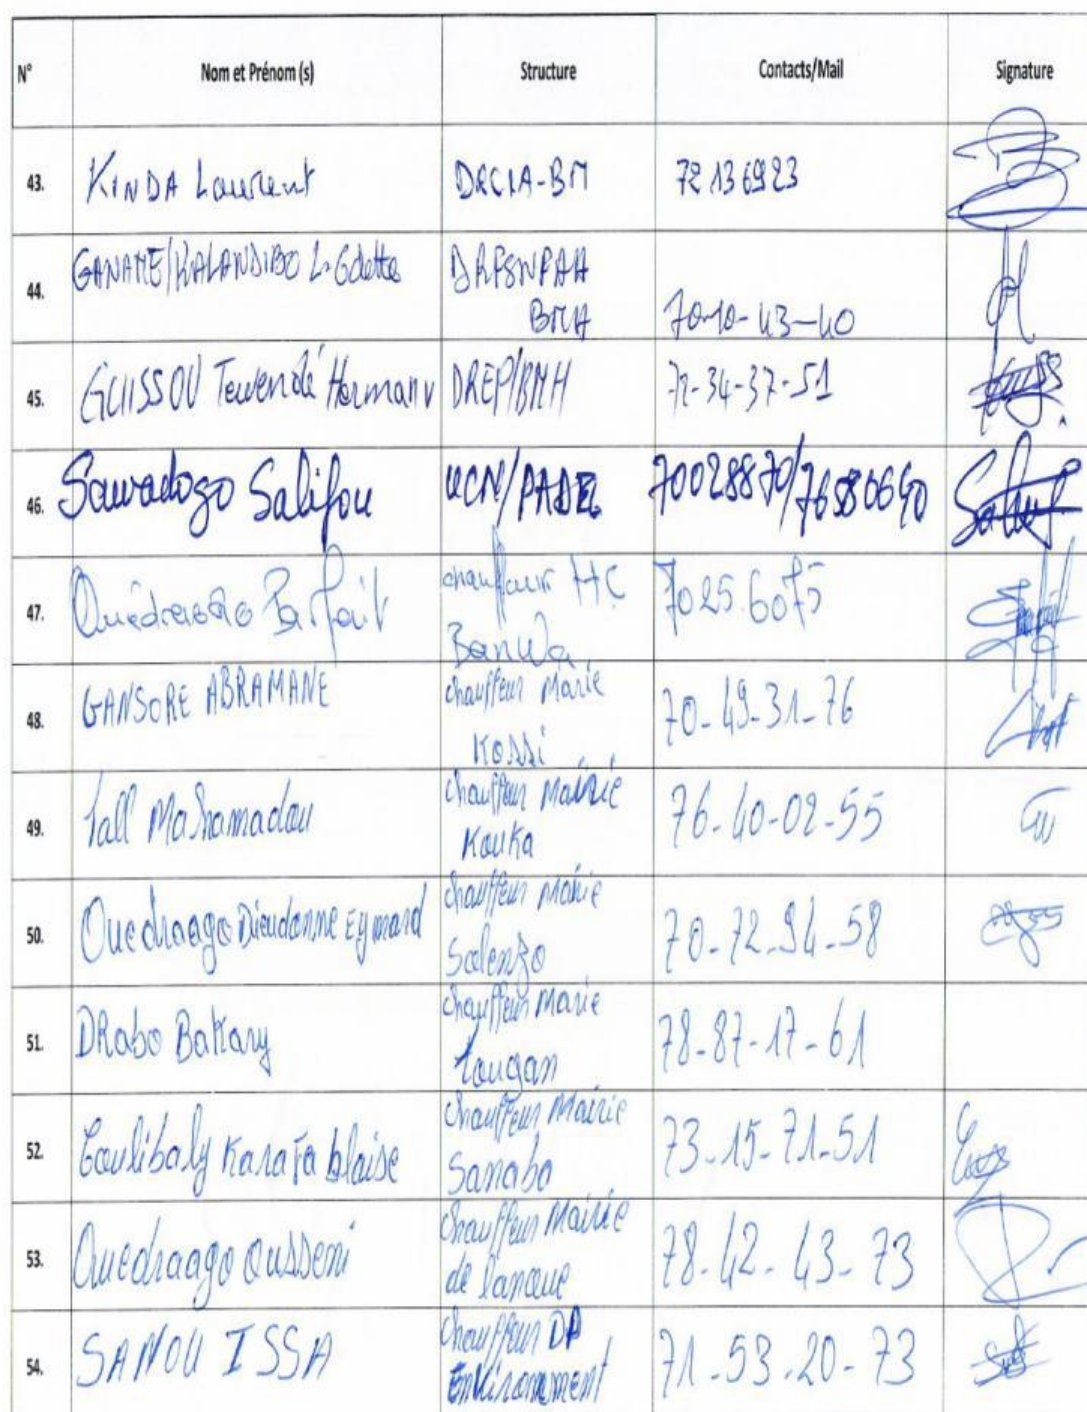 N° Nom et Prénom (s) Structure Contacts/Mail Signature
43. KINDA Laurent DRCIA-BM 72 13 69 23
44. GANAME/KALANDIBO L. Odette DRFSNFAH 
BMH 70-10-43-40
45. GUISSOU Tewendé Hermann DREP/BMH 72-34-37-51
46. Sawadogo Salifou UCN/PADEL 70028870/76580640
47. Ouédraogo Parfait chauffeur HC 70 25.60 75
Banwa
48. GANSORE ABRAMANE chauffeur Marie 70-49-31-76
Kossi
49. Tall Mahamadou chauffeur Mairie 76-40-02-55
Kouka
50. Ouedraogo Dieudonne Eymard chauffeur Mairie 70-72-94-58
Solenzo
51. DRabo Bakary chauffeur Marie 78-87-17-61
Tougan
52. Coulibaly Karafa blaise chauffeur Mairie 73-15-71-51
Sanabo
53. Ouedraogo Ousseni chauffeur Mairie 78-42-43-73
de
54. SANOU ISSA chauffeur DP 71-53-20-73
Environnement